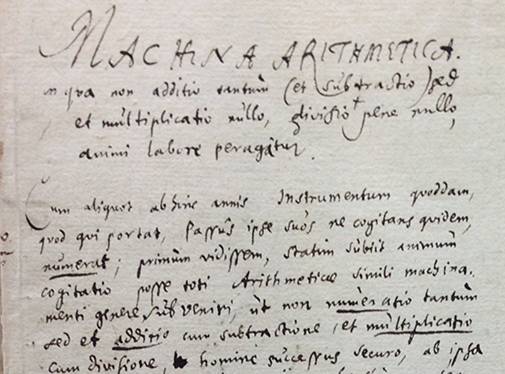 MACHINA ARITHMETICA.
in qva non additio tantùm (et subtractio) sed
et multiplicatio nullo, divisio pene nullo,
animi labore peragatur.
Cum aliquot abhinc annis Instrumentum quoddam,
quod qui portat, passus ipse suos ne cogitans quidem,
numerat; primùm vidissem, statim subiit animum
cogitatio posse toti Arithmeticae simili machina-
menti genere subveniri, ut non numeratio tantùm
sed et additio cum subtractione, et multiplicatio
cum divisione, homine successus securo, ab ipsa